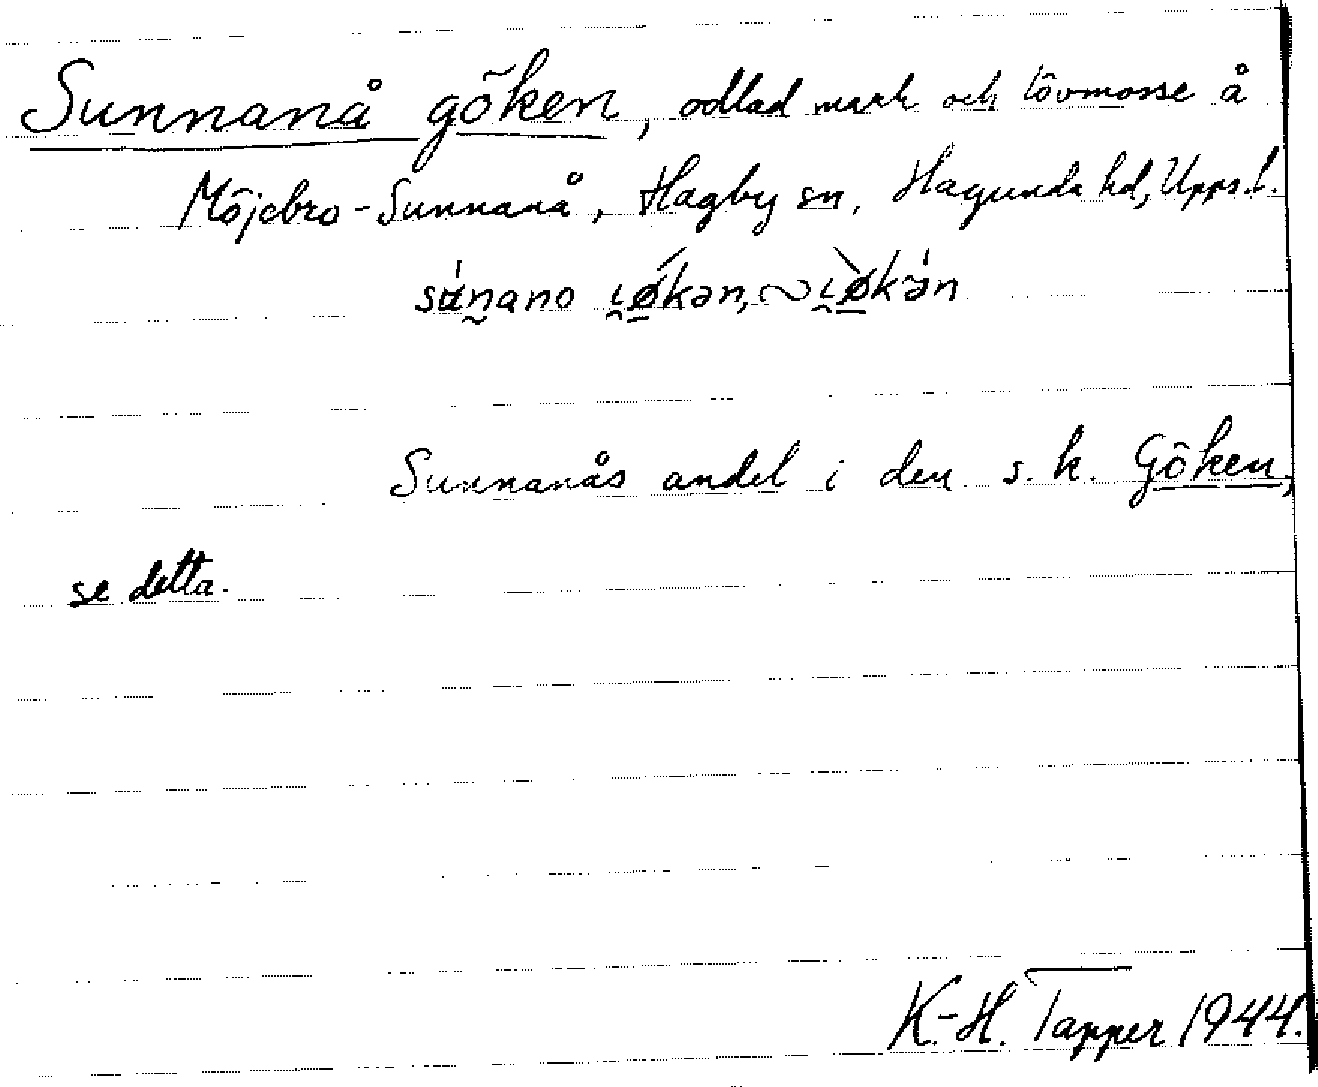 Sunnanå göken, odlad mark och lövmosse å
Möjebro-Sunnanå, Hagby sn, Hagunda hd, Upps.l.
Sunnanås andel i den s.k. Göken,
se detta.
K-H. Tapper 1944.